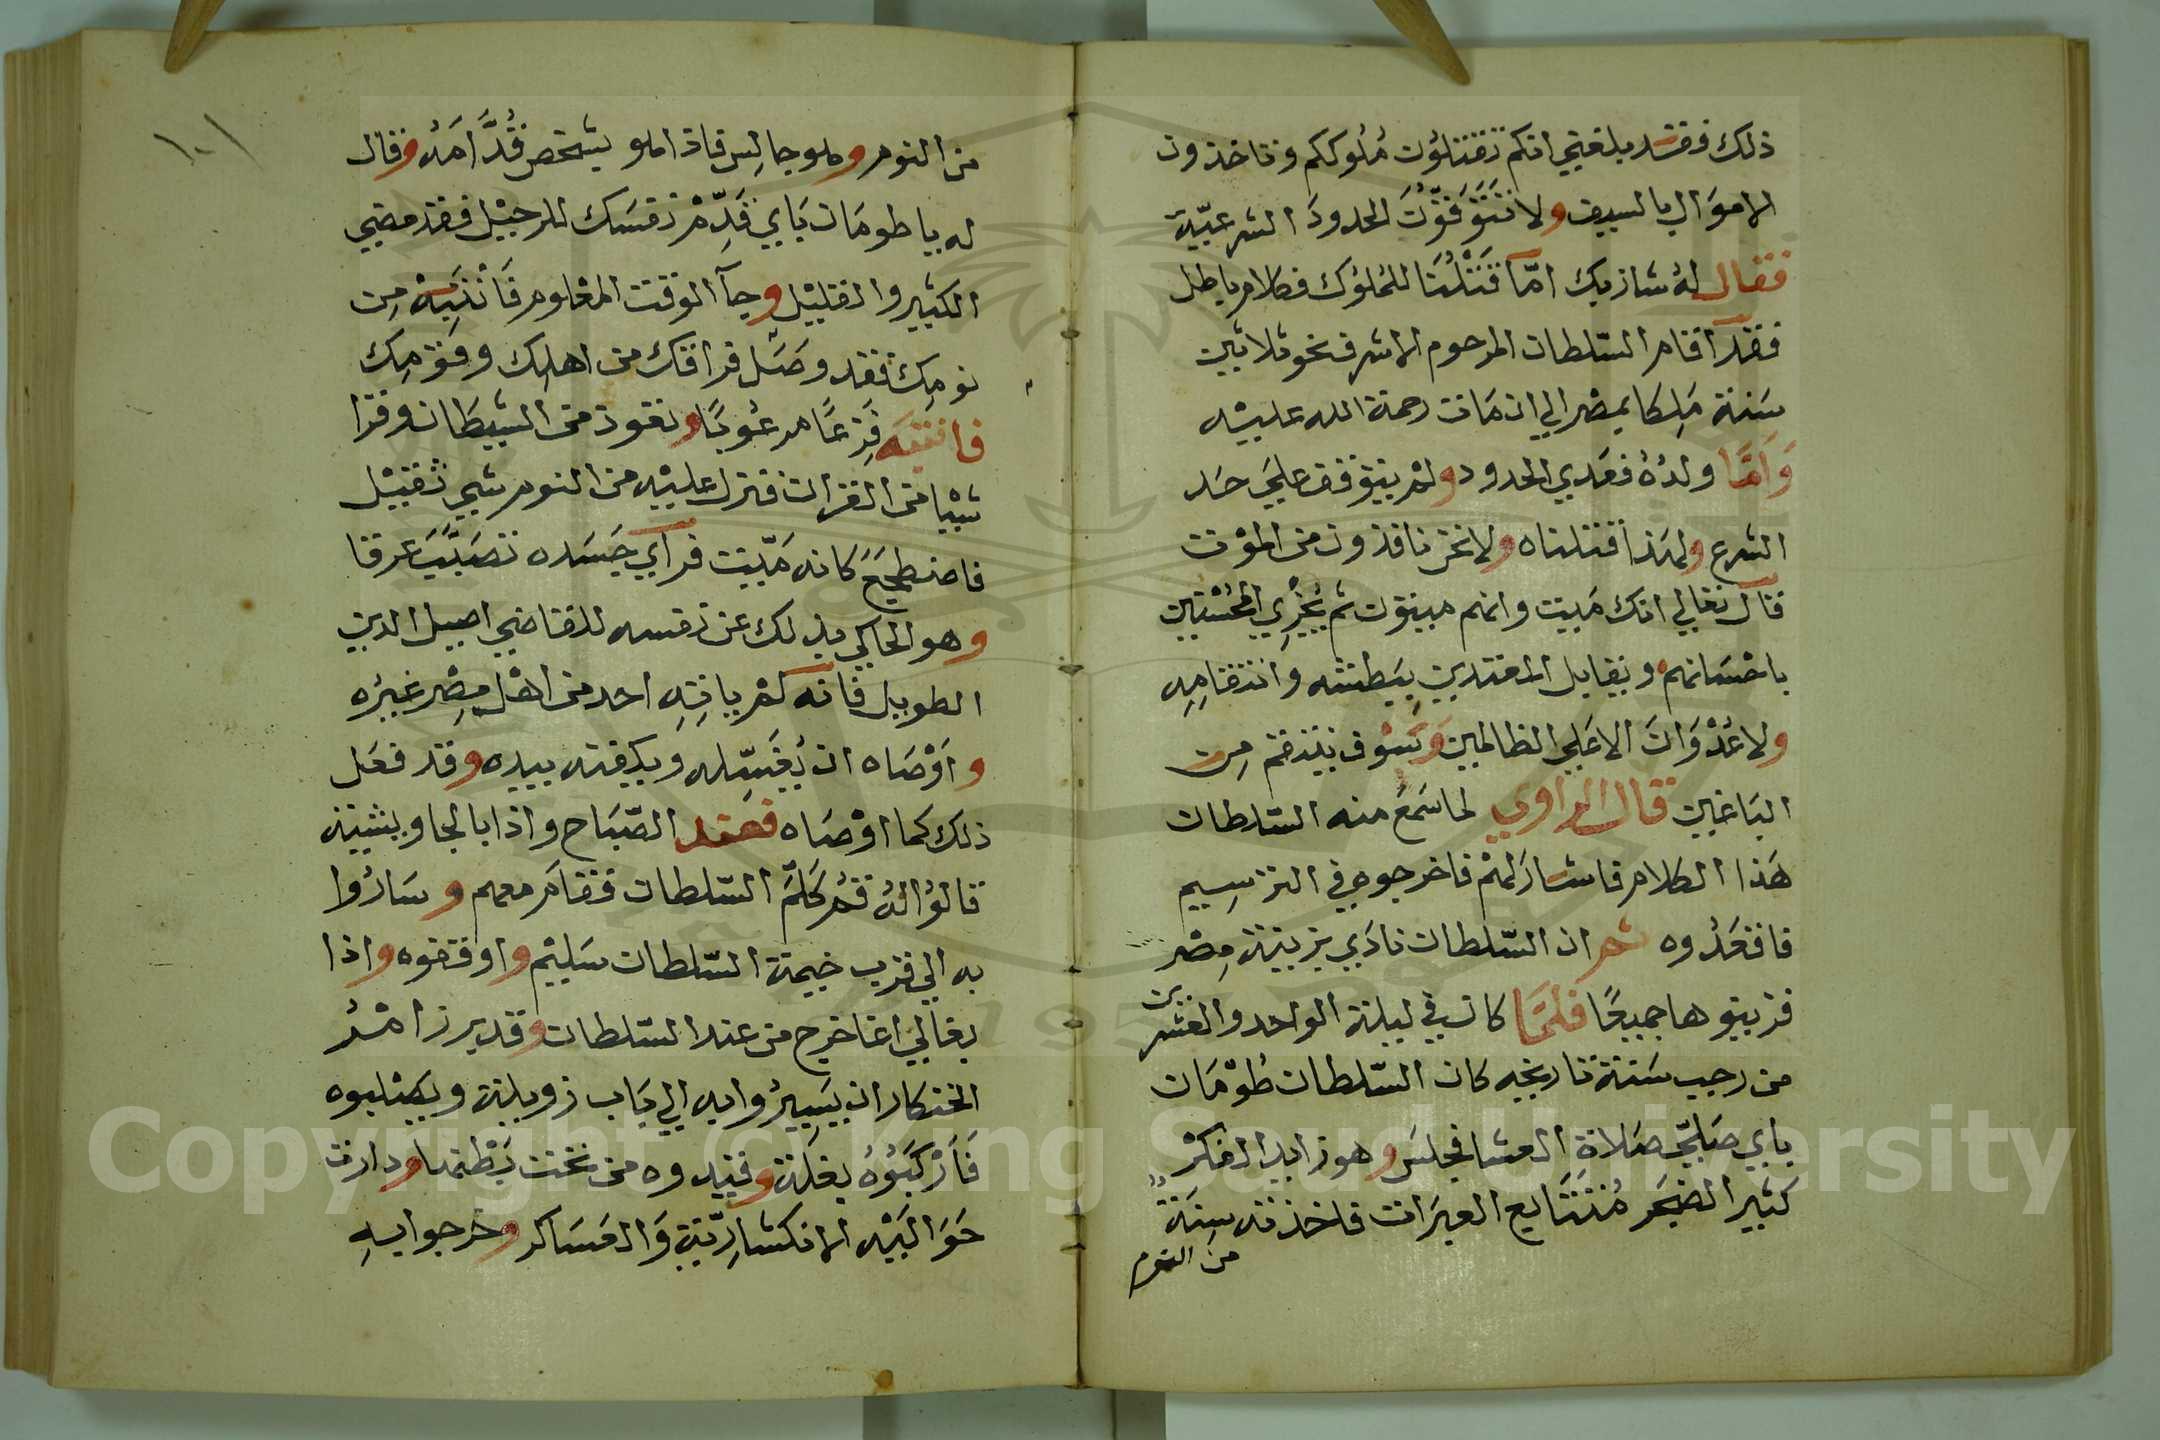 ذلك فقد بلغني انكم تقتلون ملوككم وتاخذون
الاموال بالسيف ولا تتوقون الحدود الشرعية
فقال له شاربك امّا قتلنا للملوك فكلام باطل
فقد اقام السّلطان المرحوم الاشرف نحو ثلاثين
سنة ملكا بمصر الي ان مات رحمة الله عليه
وامّا ولده فعدي الحدود ولم يتوقف علي حد
الشرع ولهذا قتلناه ولا نحن نافذون من الموت
قال تعالي انك ميت وانهم ميتون ثم يجزي المحسنين
باحسانهم ويقابل المعتدين ببطشه وانتقامه
ولا عدوان الا علي الظالمين وسوف ينتقم من
الباغين قال الراوي لما سمع منه السّلطان
هذا الكلام فاشار لهم فاخرجوه في الترسيم
فاقعدوه ثم ان السّلطان نادي بزينة مصر
فزينوها جميعًا فلمّا كان في ليلة الواحد والعشرين
من رجب سنة تاريخه كان السّلطان طومان
باي صليّ صلاة العشا فجلس وهو زايد الفكر
كثير الضجر متتابع العبرات فاخذته سنة
من النوم
١٠١
من النوم وهو جالس فاذا هو بشخص قدّامه وقال
له يا طومان باي قدّم نفسك للرحيل فقد مضي
الكثير والقليل وجآ الوقت المعلوم فانتبه من
نومك فقد وصل فراقك من اهلك وقومك
فانتبه فزعًا مرعوبًا وتعوذ من الشيطان وقرا
شيا من القران فنزل عليه من النوم شي ثقيل
فاضطجع كانه ميّت فراي جسده تصبّب عرقا
وهو الحاكي بذلك عن نفسه للقاضي اصيل الدين
الطويل فانه لم ياته احد من اهل مصر غيره
واوصاه ان يغسّله ويكفنه بيده وقد فعل
ذلك كما اوصاه فعند الصّباح واذا بالجاويشية
قالوا له قم كلّم السّلطان فقام معهم وساروا
به الي قرب خيمة السّلطان سليم واوقفوه واذا
بغالي اغا خرج من عند السّلطان وقد برز امر
الخنكار ان يسيروا به الي باب زويلة ويصلبوه
فاركبوه بغلة وقيدوه من تحت بطنها ودارت
حواليه الانكشاريّة والعساكر وخرجوا به
Copyright © King Saud University